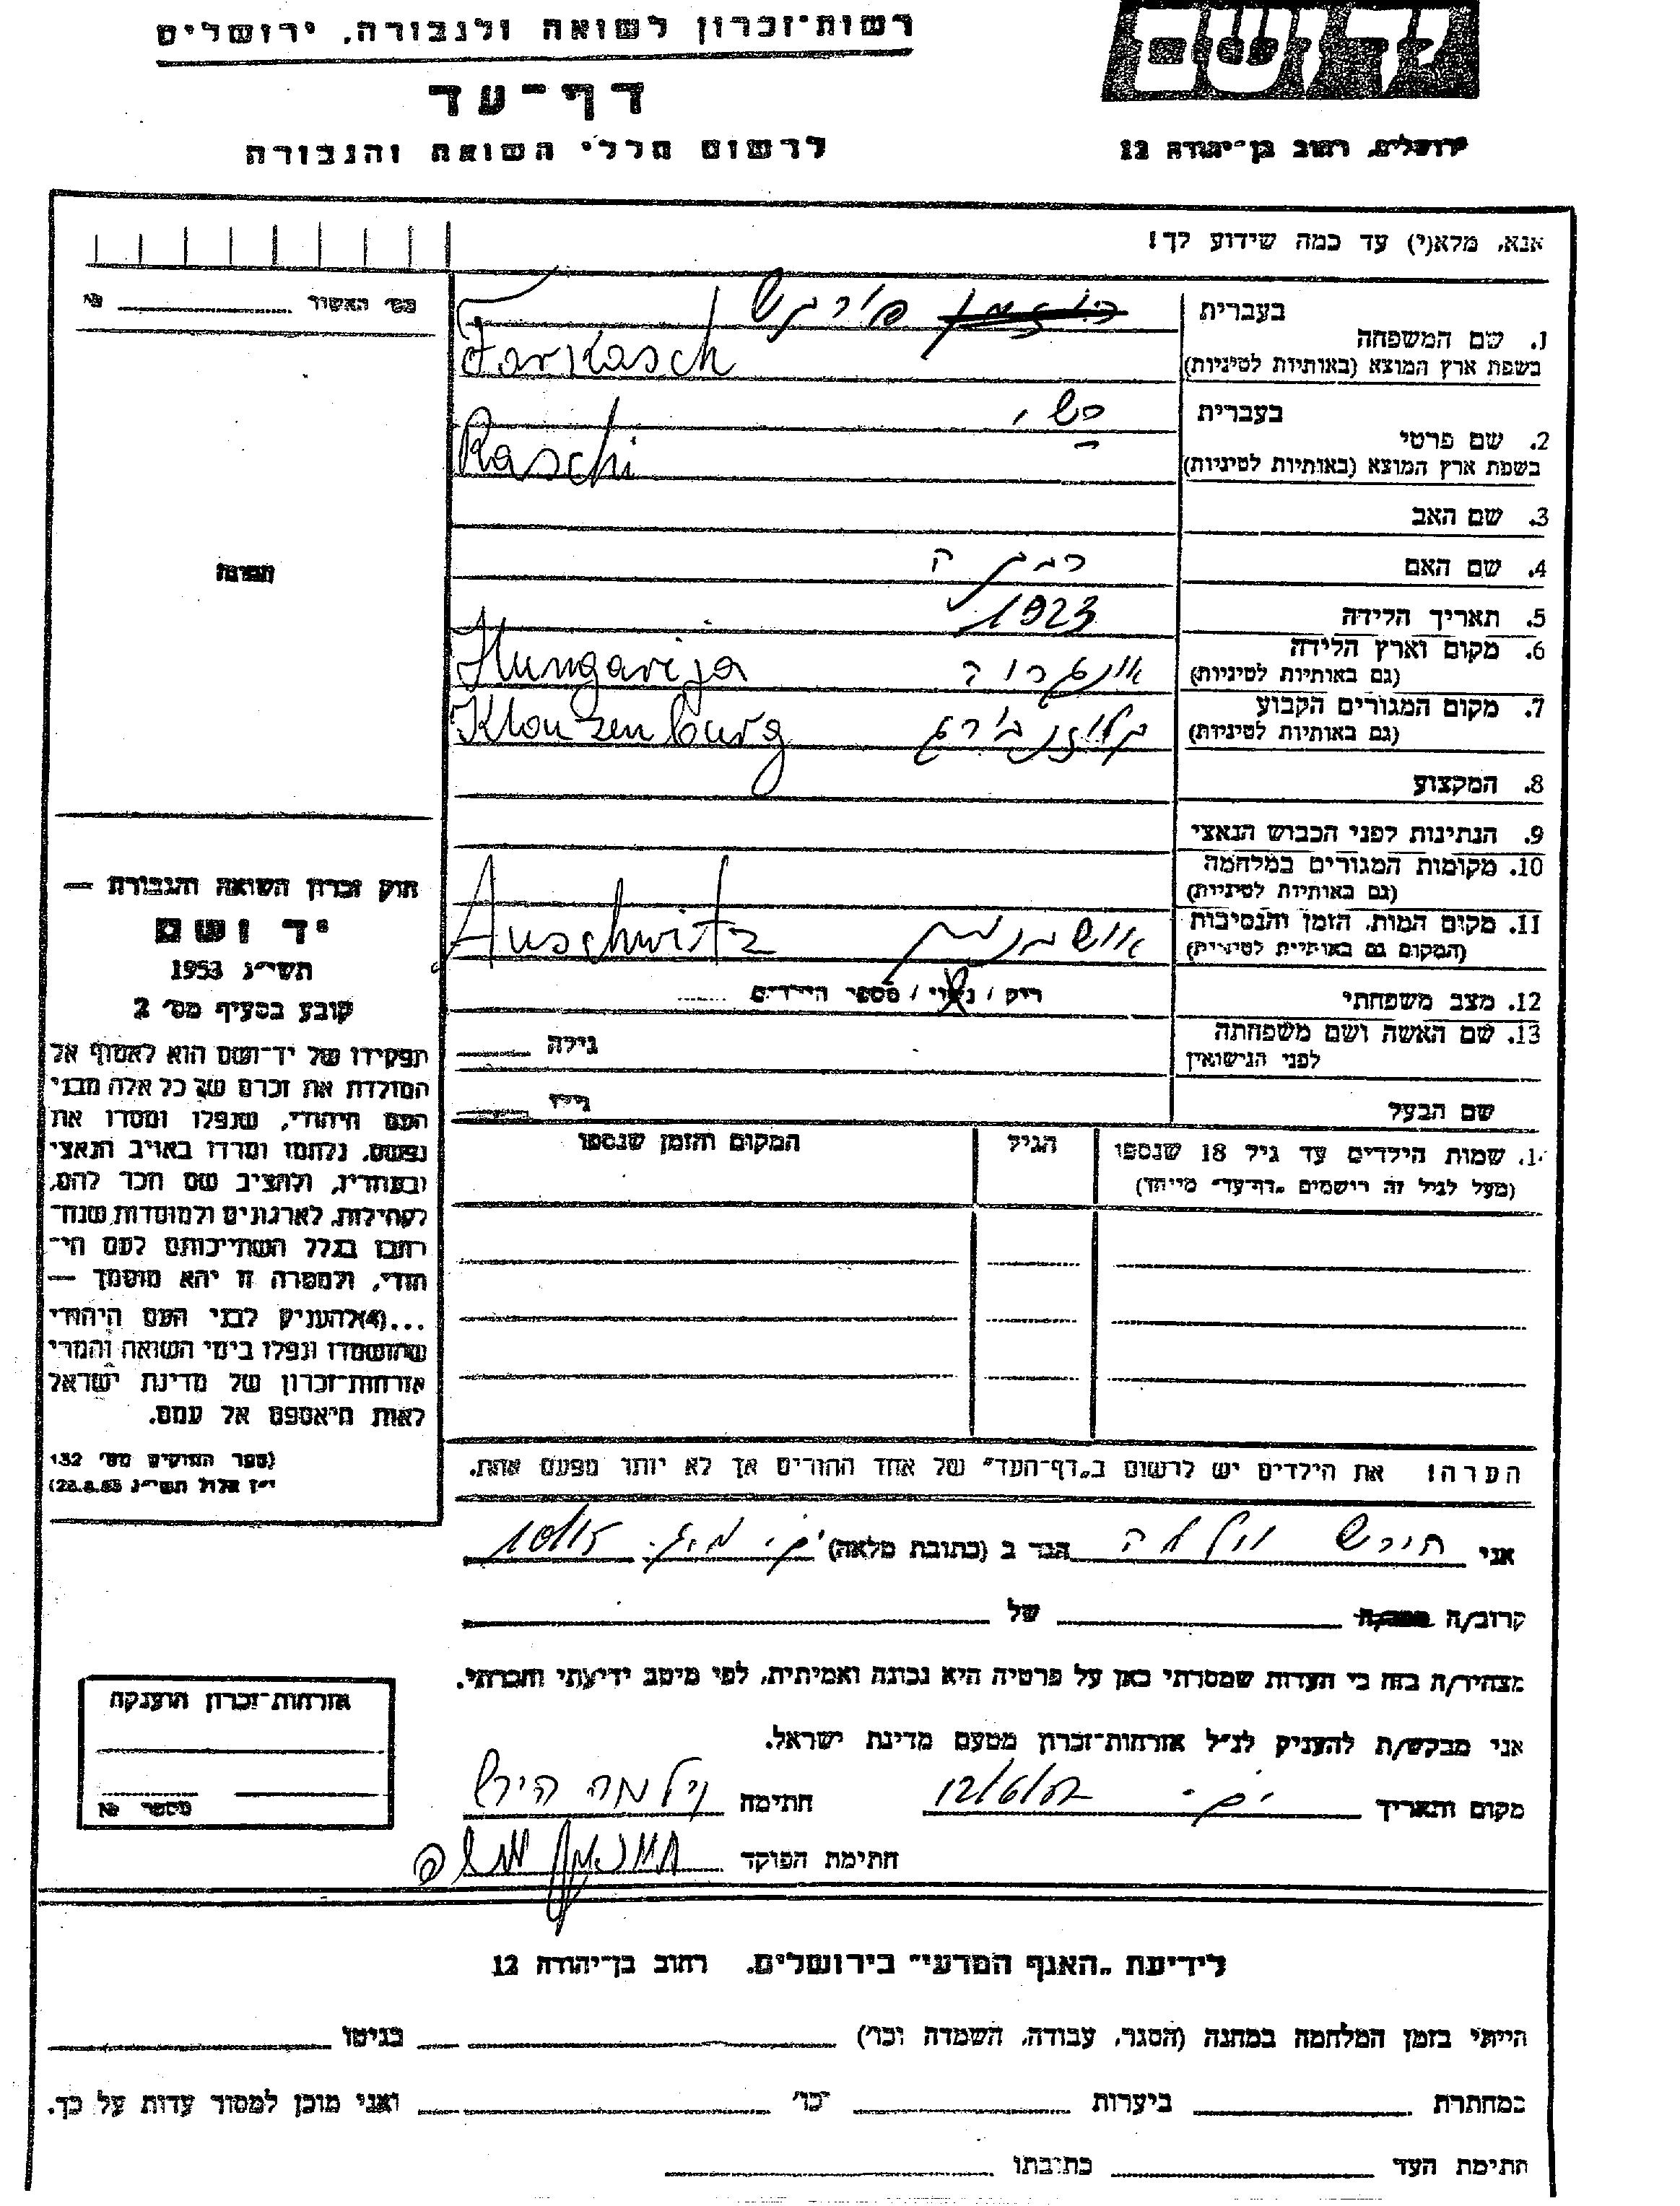 רשות־זכרון לשואה ולגבורה, ירושלים
יד ושם
דף־עד
לרשום חללי השואה והגבורה
ירושלים, רחוב בן־יהודה 12
אנא, מלא(י) עד כמה שידוע לך!
מס׳ האשור
בעברית
1. שם המשפחה
בשפת ארץ המוצא (באותיות לטיניות) Farkasch
בעברית רשי
2. שם פרטי
בשפת ארץ המוצא (באותיות לטיניות) Raschi
3. שם האב
4. שם האם רבקה
תמונה
5. תאריך הלידה 1923
6. מקום וארץ הלידה
(גם באותיות לטיניות) אונגריה Hungarija
7. מקום המגורים הקבוע
(גם באותיות לטיניות) קלוזנבורג Klouzenburg
8. המקצוע
9. הנתינות לפני הכבוש הנאצי
10. מקומות המגורים במלחמה
(גם באותיות לטיניות)
11. מקום המות, הזמן והנסיבות
(המקום גם באותיות לטיניות) אושביץ Auschwitz
12. מצב משפחתי רוק / נשוי / מספר הילדים
13. שם האשה ושם משפחתה
לפני הנישואין גילה
שם הבעל גילו
14. שמות הילדים עד גיל 18 שנספו הגיל המקום והזמן שנספו
(מעל לגיל זה רישמים "דף־עד" מייחד)
חוק זכרון השואה והגבורה —
יד ושם
תשי״ג 1953
קובע בסעיף מס׳ 2
תפקידו של יד־ושם הוא לאסוף אל
המולדת את זכרם של כל אלה מבני
העם היהודי, שנפלו ומסרו את
נפשם, נלחמו ומרדו באויב הנאצי
ובעוזריו, ולהציב שם וזכר להם,
לקהילות, לארגונים ולמוסדות שנח־
רבו בגלל השתייכותם לעם הי־
הודי, ולמטרה זו יהא מוסמך —
...(4) להעניק לבני העם היהודי
שהושמדו ונפלו בימי השואה והמרי
אזרחות־זכרון של מדינת ישראל
לאות היאספם אל עמם.
(ספר החוקים מס׳ 132
י״ז אלול תשי״ג 28.8.53)
הערה! את הילדים יש לרשום ב"דף־העד" של אחד ההורים אך לא יותר מפעם אחת.
אני הירש וילמה הגר ב (כתובת מלאה)
קרוב/ה של
מצהיר/ה בזה כי העדות שמסרתי כאן על פרטיה היא נכונה ואמיתית, לפי מיטב ידיעתי והכרתי.
אני מבקש/ת להעניק לנ״ל אזרחות־זכרון מטעם מדינת ישראל.
מקום ותאריך חתימה וילמה הירש
חתימת הפוקד
אזרחות־זכרון הוענקה
מספר №
לידיעת "האגף המדעי" בירושלים. רחוב בן־יהודה 12
הייתי בזמן המלחמה במחנה (הסגר, עבודה, השמדה וכו׳) בגיטו
במחתרת ביערות וכו׳ ואני מוכן למסור עדות על כך.
חתימת העד כתובתו